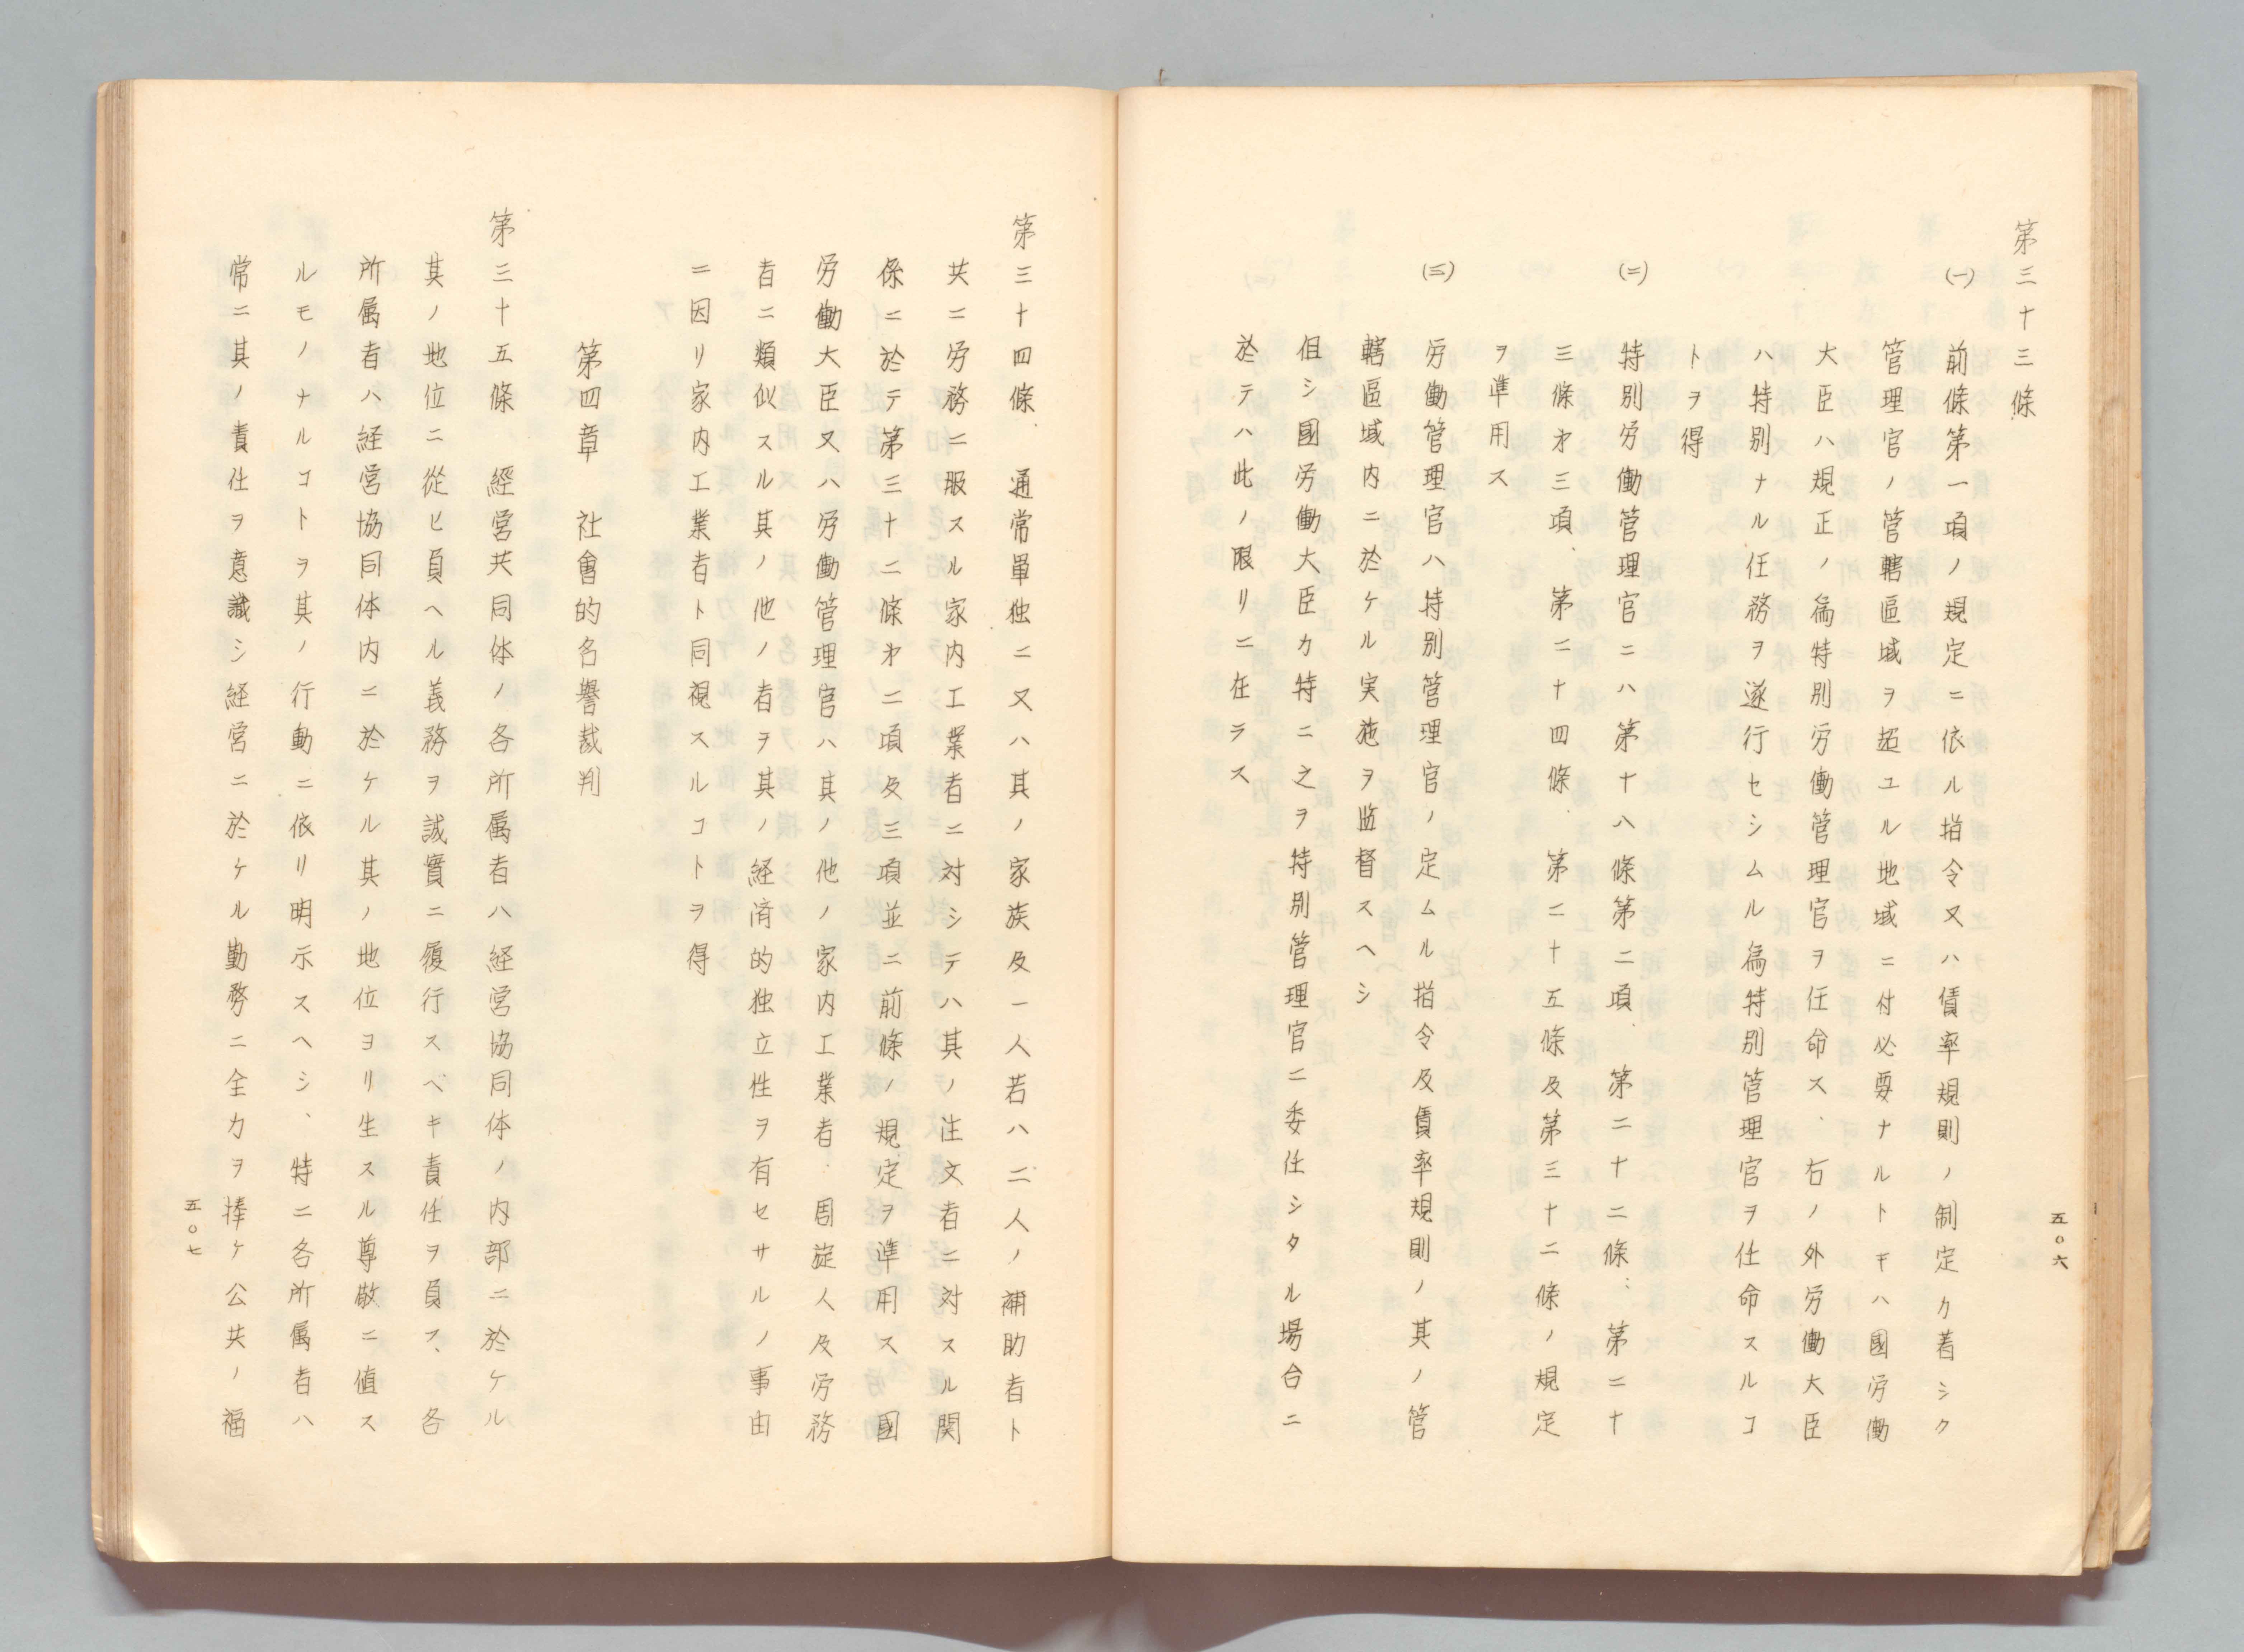 第三十三條
(一) 前條第一項ノ規定ニ依ル指令又ハ賃率規則ノ制定カ著シク
管理官ノ管轄區域ヲ超ユル地域ニ付必要ナルトキハ國労働
大臣ハ規正ノ為特別労働管理官ヲ任命ス、右ノ外労働大臣
ハ特別ナル任務ヲ遂行セシムル為特別管理官ヲ任命スルコ
トヲ得
(二) 特別労働管理官ニハ第十八條第二項、第二十二條、第二十
三條才三項、第二十四條、第二十五條及第三十二條ノ規定
ヲ準用ス
(三) 労働管理官ハ特別管理官ノ定ムル指令及賃率規則ノ其ノ管
轄區域内ニ於ケル実施ヲ監督スヘシ
但シ國労働大臣カ特ニ之ヲ特別管理官ニ委任シタル場合ニ
於テハ此ノ限リニ在ラス
五〇六
第三十四條、通常單独ニ又ハ其ノ家族及一人若ハ二人ノ補助者ト
共ニ労務ニ服スル家内工業者ニ対シテハ其ノ注文者ニ対スル関
係ニ於テ第三十二條才二項及三項並ニ前條ノ規定ヲ準用ス國
労働大臣又ハ労働管理官ハ其ノ他ノ家内工業者、周旋人及労務
者ニ類似スル其ノ他ノ者ヲ其ノ経済的独立性ヲ有セサルノ事由
ニ因リ家内工業者ト同視スルコトヲ得
第四章 社會的名譽裁判
第三十五條 經営共同体ノ各所属者ハ経営協同体ノ内部ニ於ケル
其ノ地位ニ從ヒ負ヘル義務ヲ誠實ニ履行スベキ責任ヲ負フ、各
所属者ハ経営協同体内ニ於ケル其ノ地位ヨリ生スル尊敬ニ値ス
ルモノナルコトヲ其ノ行動ニ依リ明示スヘシ、特ニ各所属者ハ
常ニ其ノ責任ヲ意識シ経営ニ於ケル勤務ニ全力ヲ捧ケ公共ノ福
五〇七